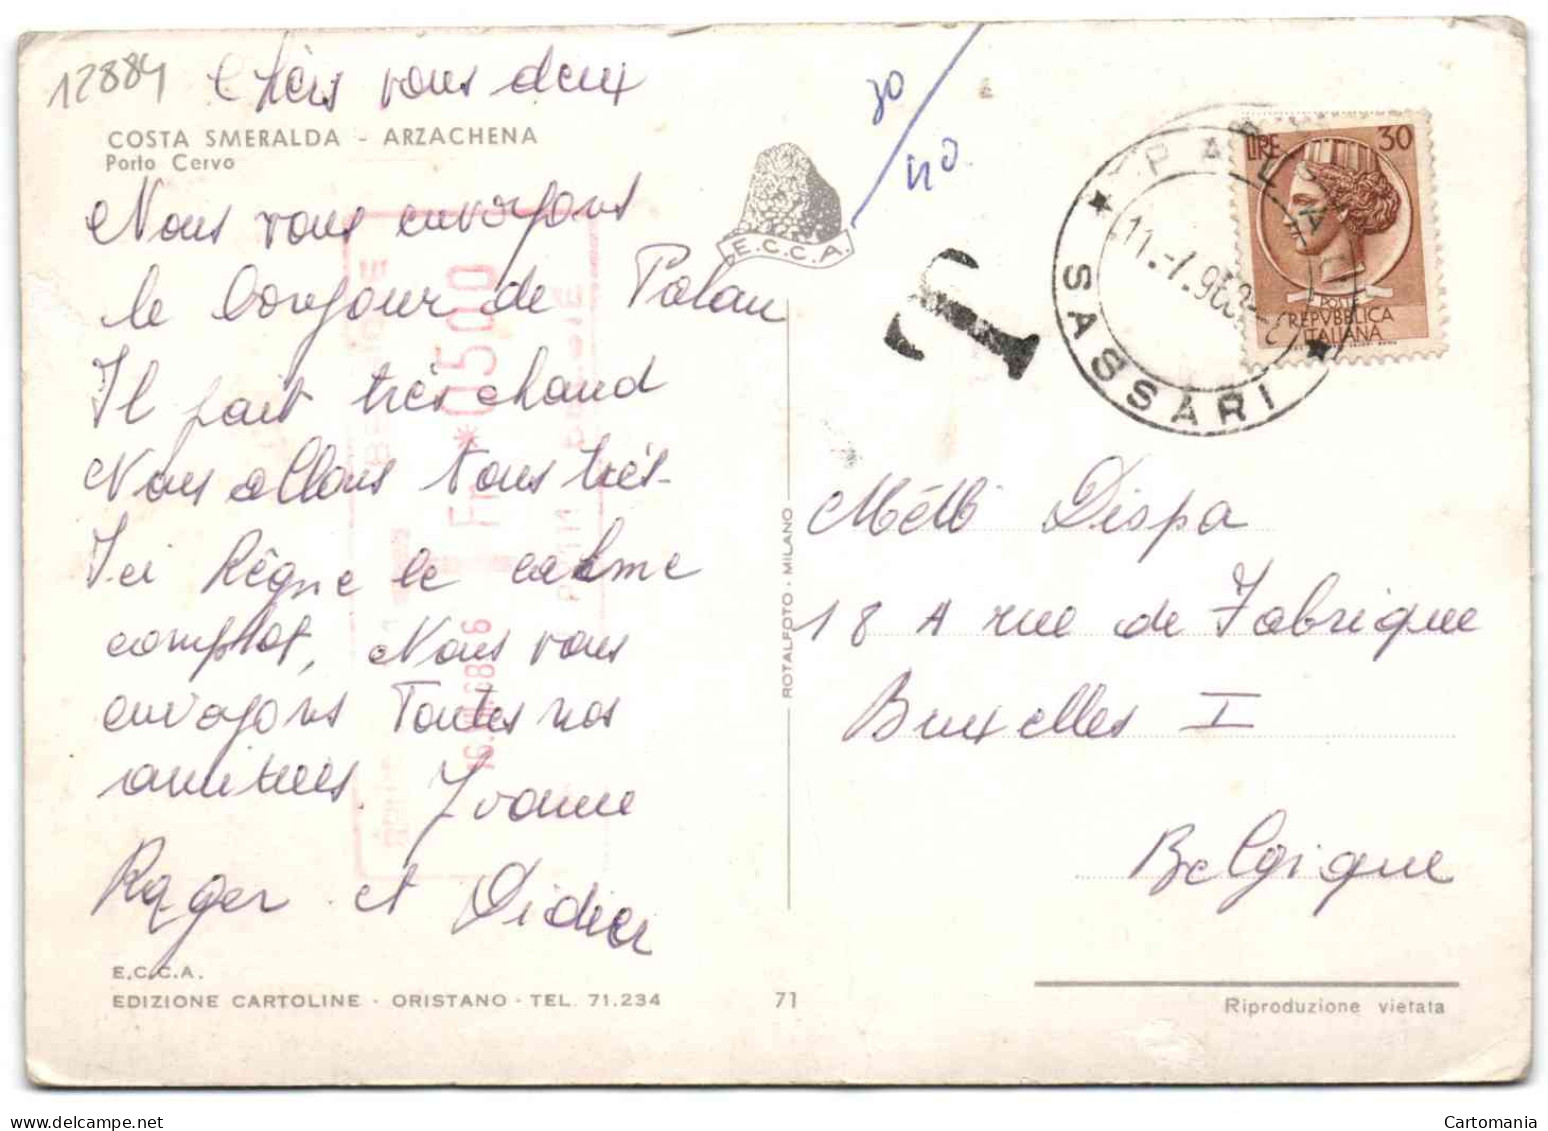 12884
Chèrs vous deux
COSTA SMERALDA - ARZACHENA
Porto Cervo
Nous vous envoyons
le bonjour de Palau
Il fait très chaud
Nous allons tous très-
Ici Règne le calme
complet, Nous vous
envoyons Toutes nos
amitiées. Yvonne
Roger et Didier
E.C.C.A.
EDIZIONE CARTOLINE - ORISTANO - TEL. 71.234
71
ROTALFOTO - MILANO
E.C.C.A.
30
40
T
PALAU
SASSARI
LIRE 30
POSTE
REPVBBLICA
ITALIANA
BELGIQUE
Fr *0500
18 A rue de Fabrique
Bruxelles I
Belgique
Riproduzione vietata
Cartomania